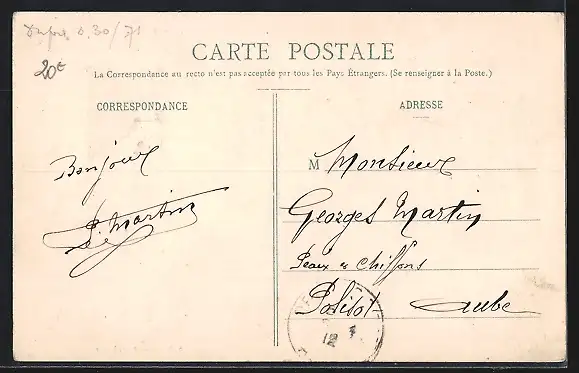 CARTE POSTALE
La Correspondance au recto n'est pas acceptée par tous les Pays Étrangers. (Se renseigner à la Poste.)
20c
CORRESPONDANCE
Bonjour
Martin
ADRESSE
M Monsieur
Georges Martin
Peaux & Chiffons
Polisot Aube
12